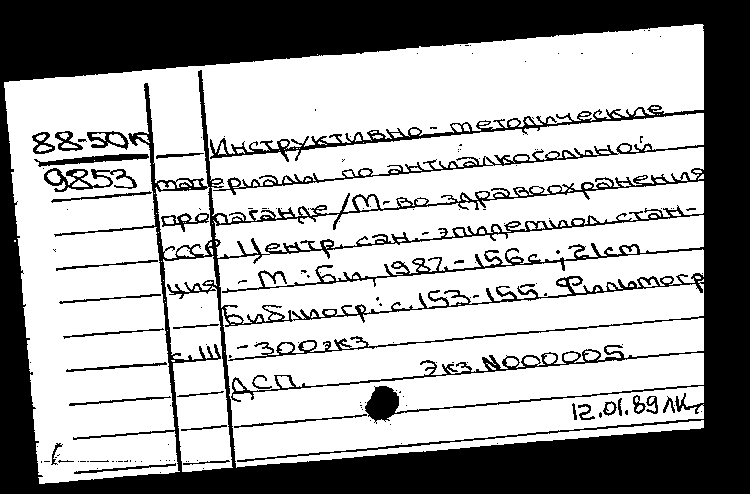 88-50К Инструктивно-методические
9853 материалы по антиалкогольной
пропаганде/М-во здравоохранения
СССР. Центр. сан.-эпидемиол. стан-
ция. - М.: Б.и., 1987. - 156с.; 21см.
Библиогр.: с. 153-155. Фильмогр
с. 111. - 300экз
ДСП. Экз. N000005.
12.01.89 ЛК